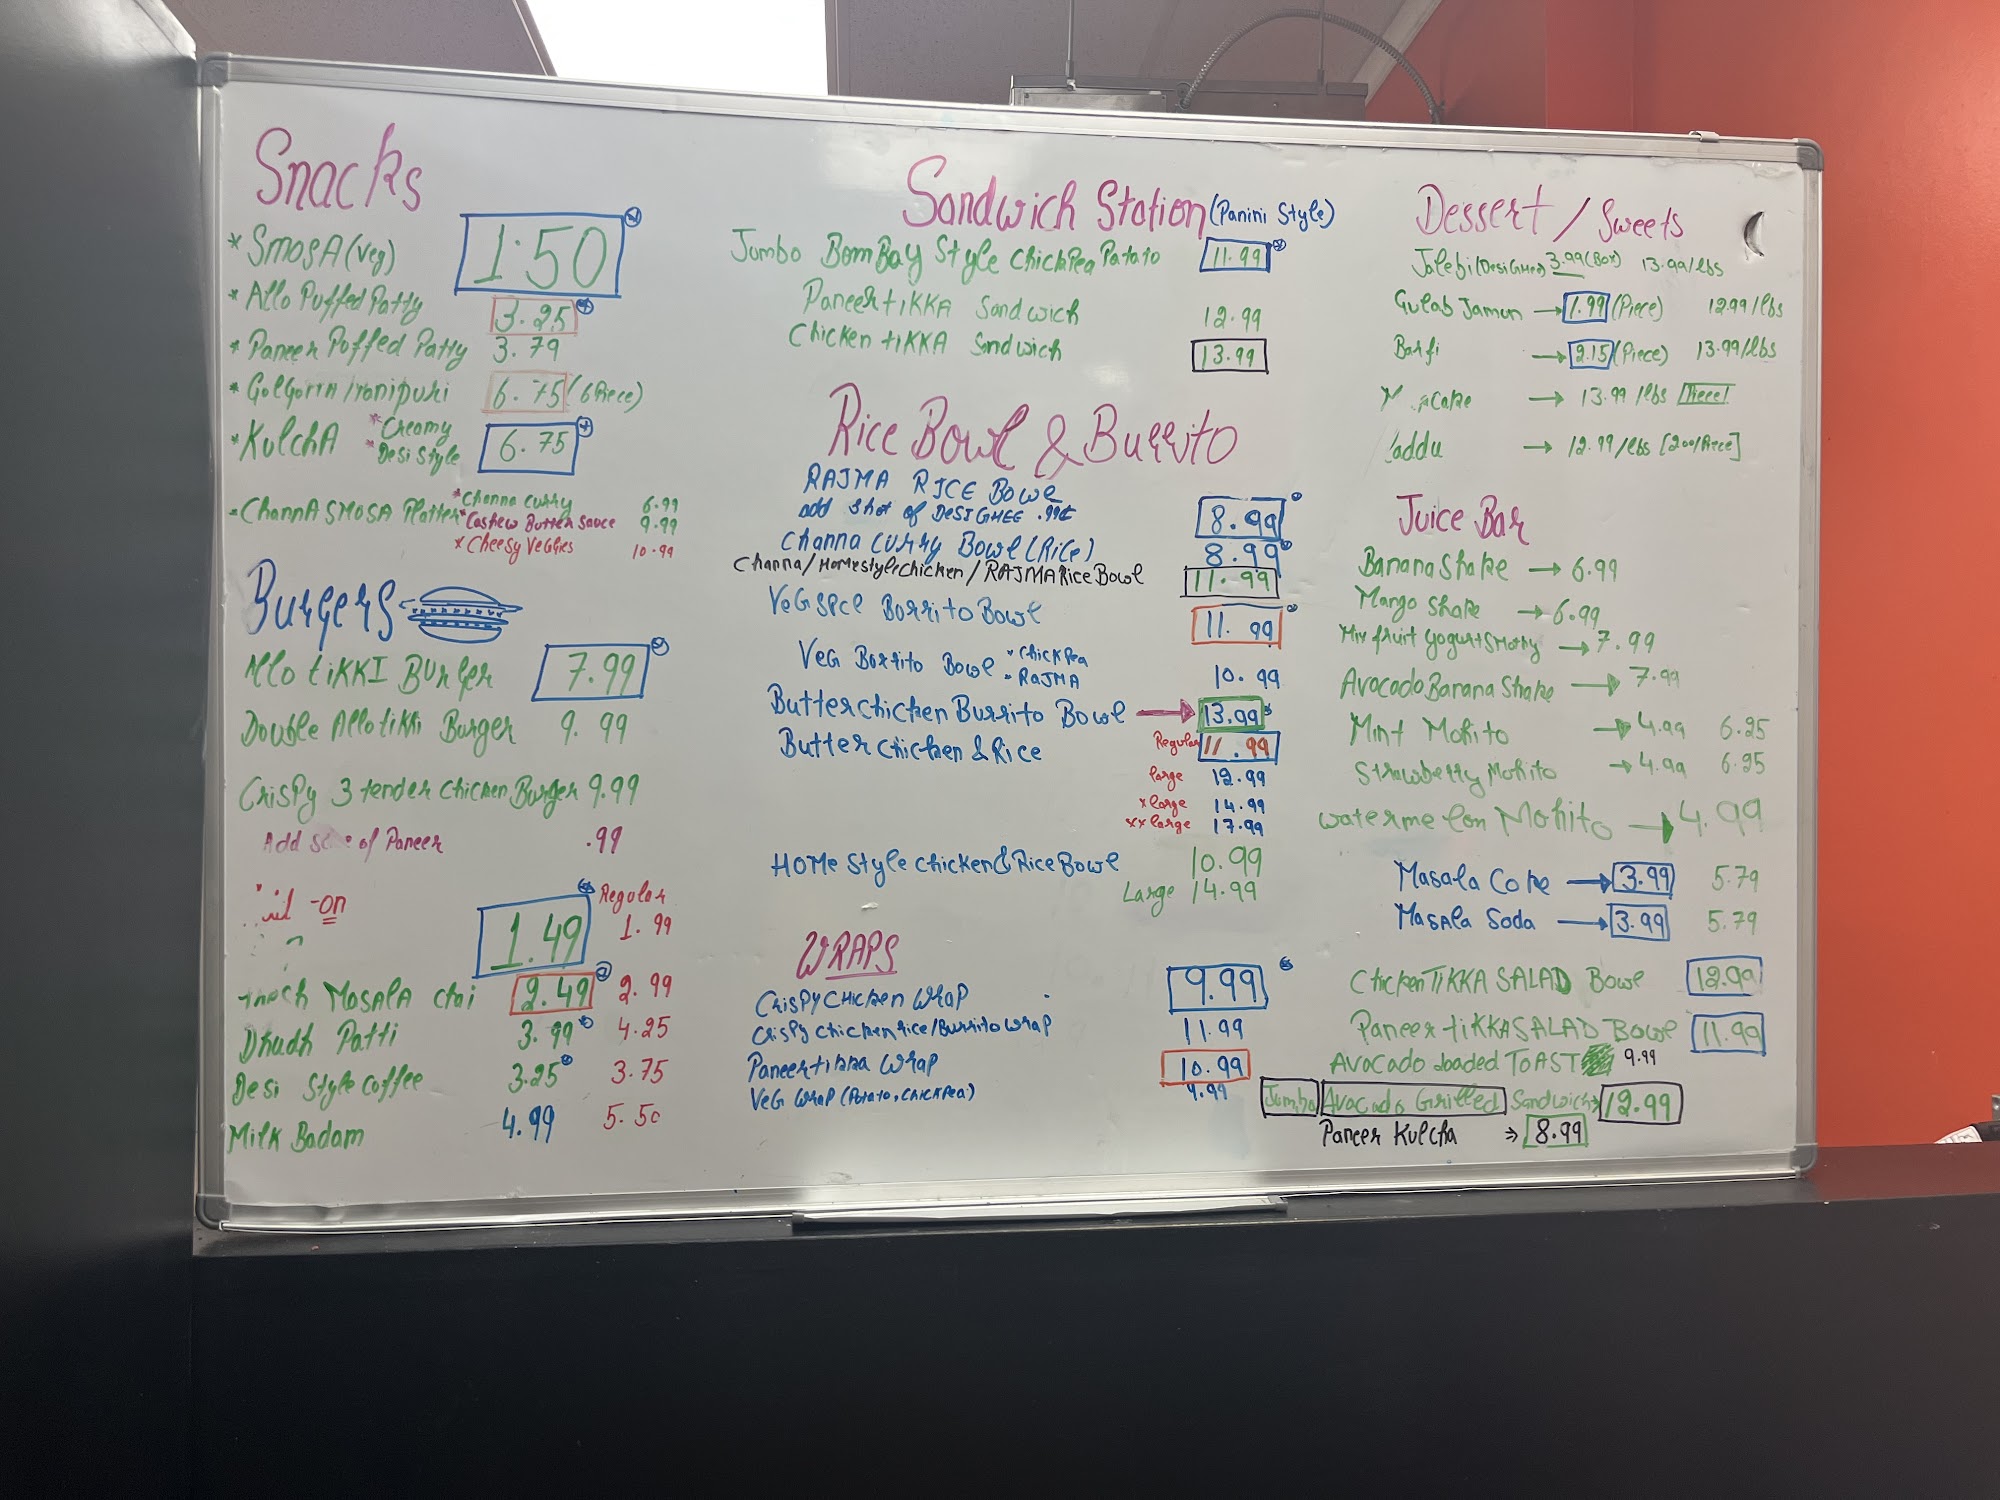 Snacks
* SMOSA (veg) 1.50
* Allo Puffed Patty 3.25
* Paneer Puffed Patty 3.79
* GolGappa/Panipuri 6.75 (6 Piece)
* KulchA *Creamy *Desi Style 6.75
* ChannA SMOSA Platter *Channa curry 6.99
*Cashew Butter Sauce 9.99
*Cheesy Veggies 10.99
BurgerS
Allo tiKKI BUrger 7.99
Double Allo tikki Burger 9.99
Crispy 3 tender Chicken Burger 9.99
Add of Paneer .99
-on
Regular
1.49 1.99
MasalA Chai 2.49 2.99
Dhudh Patti 3.99 4.25
Desi Style coffee 3.25 3.75
Milk Badam 4.99 5.50
Sandwich Station (Panini Style)
Jumbo BomBay Style ChickPea Patato 11.99
Paneer tiKKA Sandwich 12.99
Chicken tiKKA Sandwich 13.99
Rice Bowl & Burrito
RAJMA RICE Bowl
add shot of DESI GHEE .99¢ 8.99
Channa Curry Bowl (Rice) 8.99
Channa/Homestyle Chicken/RAJMA Rice Bowl 11.99
VeG SPCL Borrito Bowl 11.99
VeG Borrito Bowl *ChickPea *RAJMA 10.99
Butter Chicken Burrito Bowl → 13.99
Butter Chicken & Rice Regular 11.99
large 12.99
xlarge 14.99
xxlarge 17.99
HOMe Style Chicken & Rice Bowl 10.99
Large 14.99
WRAPS
CrisPy CHicken WraP 9.99
CrisPy Chicken rice/Burrito wrap 11.99
Paneer tikka WraP 10.99
VeG WraP (Potato, CHICKPea) 9.99
Dessert / Sweets
Jalebi (Desi GHee) 3.99 (Box) 13.99/lbs
Gulab Jamun → 1.99 (Piece) 12.99/lbs
Barfi → 2.15 (Piece) 13.99/lbs
Cake → 13.99/lbs
addu → 12.99/lbs [2.00/Piece]
Juice Bar
Banana Shake → 6.99
Mango Shake → 6.99
Mix fruit yogurt Smothy → 7.99
Avocado Banana Shake → 7.99
Mint Mohito → 4.99 6.25
Strawberry Mohito → 4.99 6.25
watermelon Mohito → 4.99
Masala Coke → 3.99 5.79
Masala Soda → 3.99 5.79
Chicken TIKKA SALAD Bowl 12.99
Paneer tikka SALAD Bowl 11.99
Avocado Loaded TOAST 9.99
Jumbo Avocado Grilled Sandwich → 12.99
Paneer Kulcha ⇒ 8.99